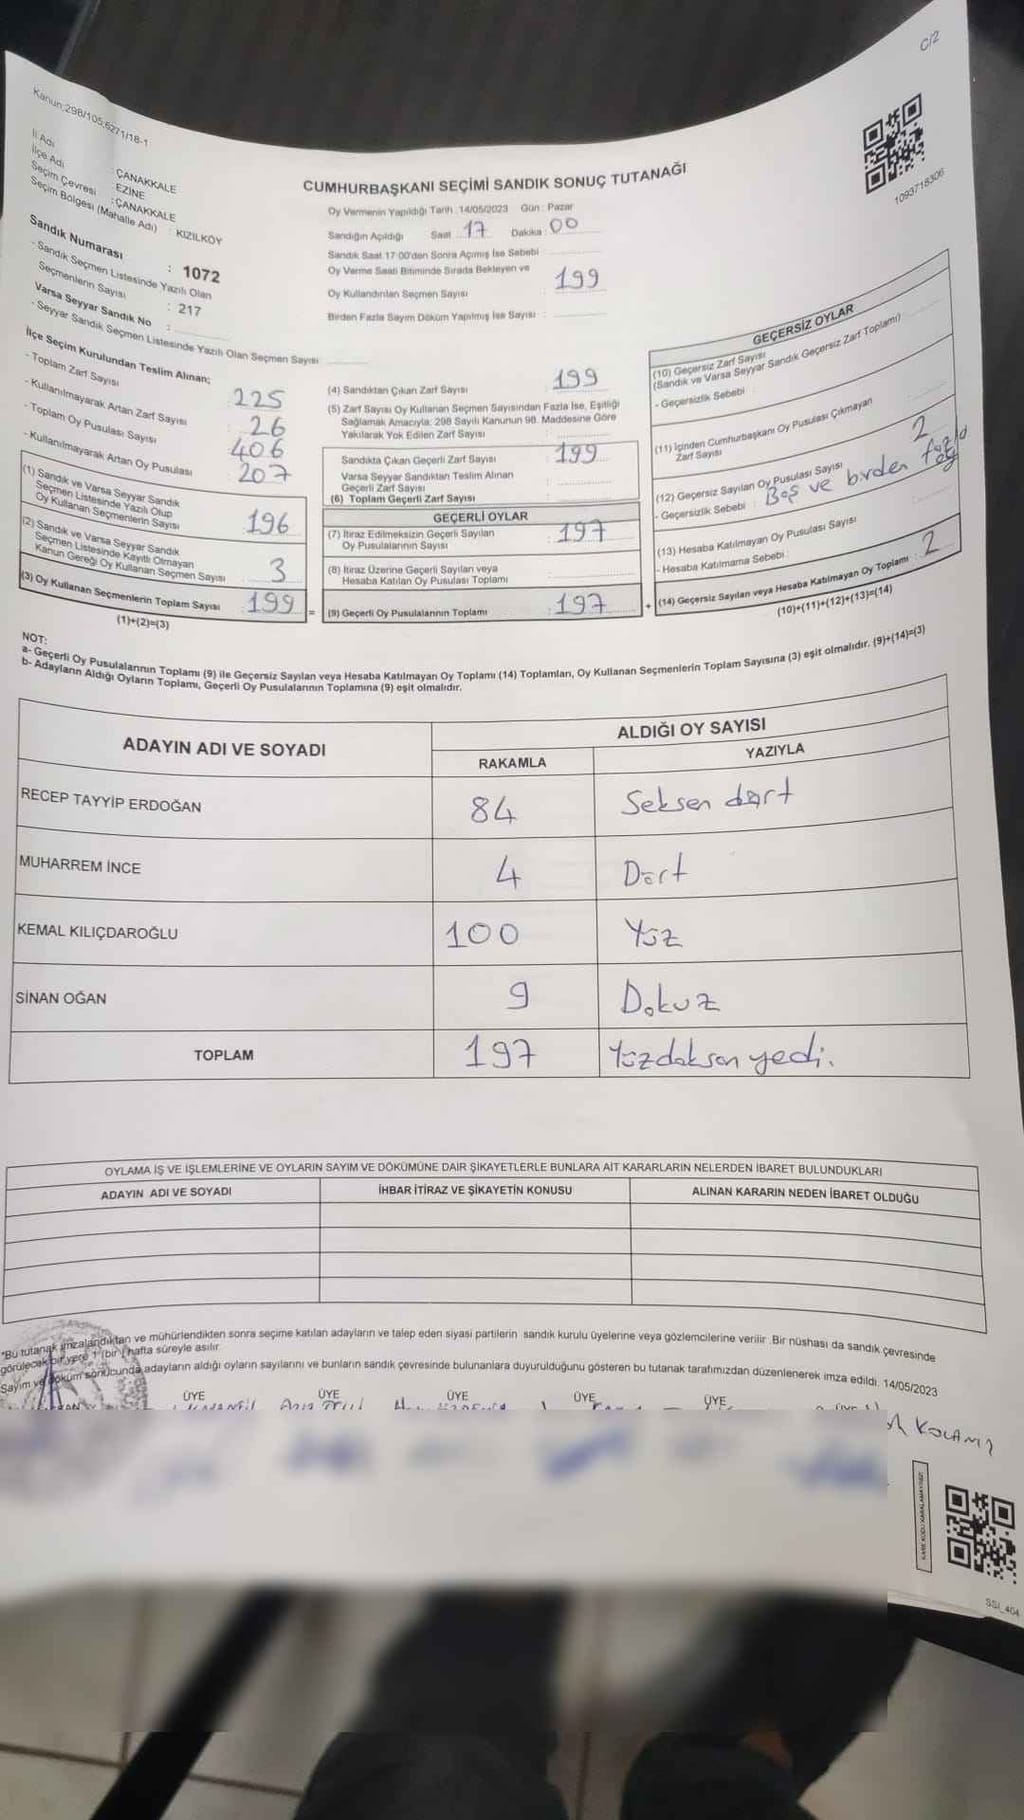 C/2
Kanun:298/105,6271/18-1
1093718306
İl Adı : ÇANAKKALE
İlçe Adı : EZİNE
Seçim Çevresi : ÇANAKKALE
Seçim Bölgesi (Mahalle Adı) : KIZILKÖY
Sandık Numarası : 1072
- Sandık Seçmen Listesinde Yazılı Olan
Seçmenlerin Sayısı : 217
Varsa Seyyar Sandık No :
- Seyyar Sandık Seçmen Listesinde Yazılı Olan Seçmen Sayısı
CUMHURBAŞKANI SEÇİMİ SANDIK SONUÇ TUTANAĞI
Oy Vermenin Yapıldığı Tarih : 14/05/2023 Gün : Pazar
Sandığın Açıldığı Saat 17 Dakika : 00
Sandık Saat 17:00'den Sonra Açılmış İse Sebebi
Oy Verme Saati Bitiminde Sırada Bekleyen ve
Oy Kullandırılan Seçmen Sayısı : 199
Birden Fazla Sayım Döküm Yapılmış İse Sayısı :
İlçe Seçim Kurulundan Teslim Alınan;
- Toplam Zarf Sayısı : 225
- Kullanılmayarak Artan Zarf Sayısı : 26
- Toplam Oy Pusulası Sayısı : 406
- Kullanılmayarak Artan Oy Pusulası : 207
(1) Sandık ve Varsa Seyyar Sandık
Seçmen Listesinde Yazılı Olup
Oy Kullanan Seçmenlerin Sayısı : 196
(2) Sandık ve Varsa Seyyar Sandık
Seçmen Listesinde Kayıtlı Olmayan
Kanun Gereği Oy Kullanan Seçmen Sayısı : 3
(3) Oy Kullanan Seçmenlerin Toplam Sayısı : 199 =
(1)+(2)=(3)
(4) Sandıktan Çıkan Zarf Sayısı : 199
(5) Zarf Sayısı Oy Kullanan Seçmen Sayısından Fazla İse, Eşitliği
Sağlamak Amacıyla; 298 Sayılı Kanunun 98. Maddesine Göre
Yakılarak Yok Edilen Zarf Sayısı :
Sandıkta Çıkan Geçerli Zarf Sayısı : 199
Varsa Seyyar Sandıktan Teslim Alınan
Geçerli Zarf Sayısı :
(6) Toplam Geçerli Zarf Sayısı :
GEÇERLİ OYLAR
(7) İtiraz Edilmeksizin Geçerli Sayılan
Oy Pusulalarının Sayısı : 197
(8) İtiraz Üzerine Geçerli Sayılan veya
Hesaba Katılan Oy Pusulası Toplamı :
(9) Geçerli Oy Pusulalarının Toplamı : 197 +
GEÇERSİZ OYLAR
(10) Geçersiz Zarf Sayısı
(Sandık ve Varsa Seyyar Sandık Geçersiz Zarf Toplamı)
- Geçersizlik Sebebi :
(11) İçinden Cumhurbaşkanı Oy Pusulası Çıkmayan
Zarf Sayısı
(12) Geçersiz Sayılan Oy Pusulası Sayısı 2
- Geçersizlik Sebebi : Boş ve birden fazla
oy
(13) Hesaba Katılmayan Oy Pusulası Sayısı
- Hesaba Katılmama Sebebi :
(14) Geçersiz Sayılan veya Hesaba Katılmayan Oy Toplamı : 2
(10)+(11)+(12)+(13)=(14)
NOT:
a- Geçerli Oy Pusulalarının Toplamı (9) ile Geçersiz Sayılan veya Hesaba Katılmayan Oy Toplamı (14) Toplamları, Oy Kullanan Seçmenlerin Toplam Sayısına (3) eşit olmalıdır. (9)+(14)=(3)
b- Adayların Aldığı Oyların Toplamı, Geçerli Oy Pusulalarının Toplamına (9) eşit olmalıdır.
ADAYIN ADI VE SOYADI
ALDIĞI OY SAYISI
RAKAMLA YAZIYLA
RECEP TAYYİP ERDOĞAN 84 Seksen dört
MUHARREM İNCE 4 Dört
KEMAL KILIÇDAROĞLU 100 Yüz
SİNAN OĞAN 9 Dokuz
TOPLAM 197 Yüzdoksan yedi.
OYLAMA İŞ VE İŞLEMLERİNE VE OYLARIN SAYIM VE DÖKÜMÜNE DAİR ŞİKAYETLERLE BUNLARA AİT KARARLARIN NELERDEN İBARET BULUNDUKLARI
ADAYIN ADI VE SOYADI İHBAR İTİRAZ VE ŞİKAYETİN KONUSU ALINAN KARARIN NEDEN İBARET OLDUĞU
*Bu tutanak imzalandıktan ve mühürlendikten sonra seçime katılan adayların ve talep eden siyasi partilerin sandık kurulu üyelerine veya gözlemcilerine verilir. Bir nüshası da sandık çevresinde
görülecek bir yere 1 (bir) hafta süreyle asılır.
Sayım ve döküm sonucunda adayların aldığı oyların sayılarını ve bunların sandık çevresinde bulunanlara duyurulduğunu gösteren bu tutanak tarafımızdan düzenlenerek imza edildi. 14/05/2023
ÜYE ÜYE ÜYE ÜYE ÜYE
SSI_404